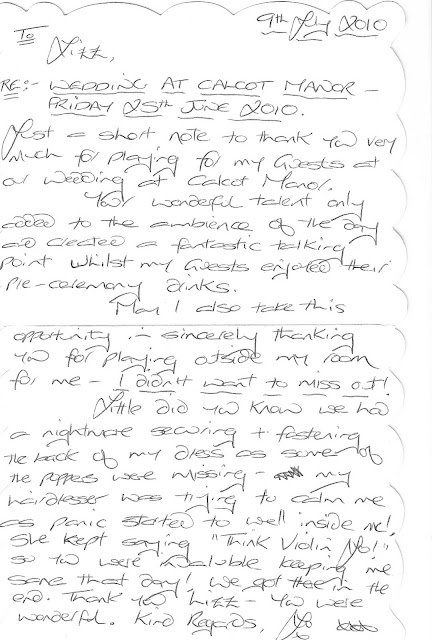 9th July 2010
To
Lizz,
RE:- WEDDING AT CALCOT MANOR -
FRIDAY 25th JUNE 2010.
Just a short note to thank you very
much for playing for my Guests at
our wedding at Calcot Manor.
Your wonderful talent only
added to the ambience of the day
and created a fantastic talking
point whilst my Guests enjoyed their
pre-ceremony drinks.
May I also take this
opportunity in sincerely thanking
you for playing outside my room
for me - I didn't want to miss out!
Little did you know we had
a nightmare securing + fastening
the back of my dress as some of
the poppers were missing - my
hairdresser was trying to calm me
as panic started to well inside me!
She kept saying "Think Violin Jo!"
so you were invaluable keeping me
sane that day! We got there in the
end. Thank you Lizz - you were
wonderful. Kind Regards, Jo